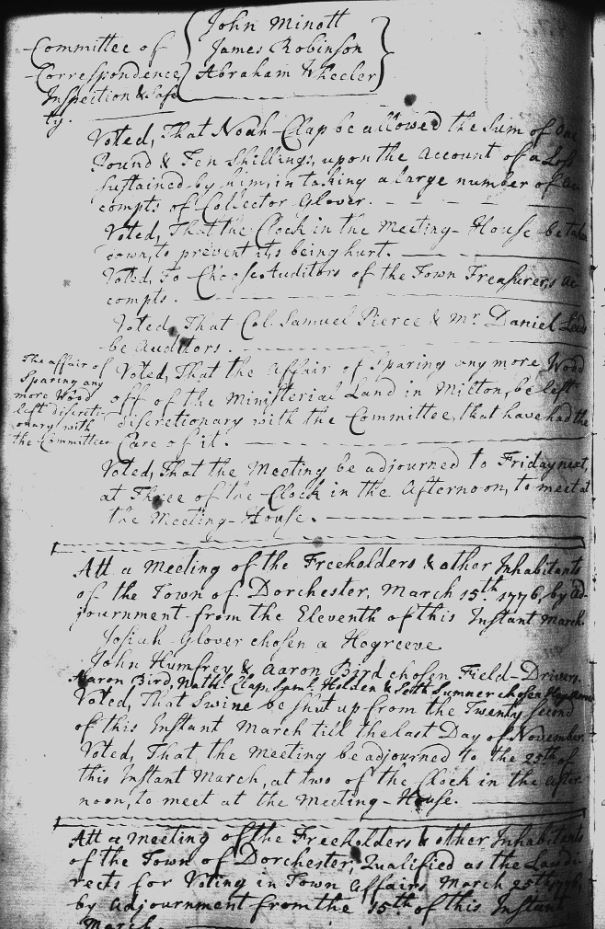 Committee of
Correspondence
Inspection & Safe
ty.
John Minott
James Robinson
Abraham Wheeler
Voted, That Noah Clap be allowed the Sum of One
Pound & Ten Shillings, upon the Account of a Loss
sustained by him, in taking a large number of Ac
compts of Collector Glover.
Voted, That the Clock in the Meeting-House be taken
down, to prevent its being hurt.
Voted, To Choose Auditors of the Town Treasurers Ac
compts.
Voted, That Col. Samuel Pierce & Mr. Daniel Leeds
be Auditors.
The affair of
Sparing any
more Wood
left discreti-
onary with
the Committee
Voted, That the Affair of Sparing any more Wood
off of the Ministerial Land in Milton, be left
discretionary with the Committee, that have had the
Care of it.
Voted, That the Meeting be adjourned to Friday next,
at Three of the Clock in the Afternoon, to meet at
the Meeting-House.
Att a Meeting of the Freeholders & other Inhabitants
of the Town of Dorchester, March 15th. 1776, by ad-
journment from the Eleventh of this Instant March.
Josiah Glover chosen a Hogreeve
John Humfrey & Aaron Bird chosen Field-Drivers.
Aaron Bird, Nathl. Clap, Saml. Holden & Seth Sumner chosen
Voted, That Swine be shut up from the Twenty second
of this Instant March till the last Day of November.
Voted, That the Meeting be adjourned to the 25th of
this Instant March, at two of the Clock in the After
noon, to meet at the Meeting-House.
Att a Meeting of the Freeholders & other Inhabitants
of the Town of Dorchester, Qualified as the Law di-
rects for Voting in Town Affairs March 25th 1776,
by adjournment from the 15th. of this Instant
March.